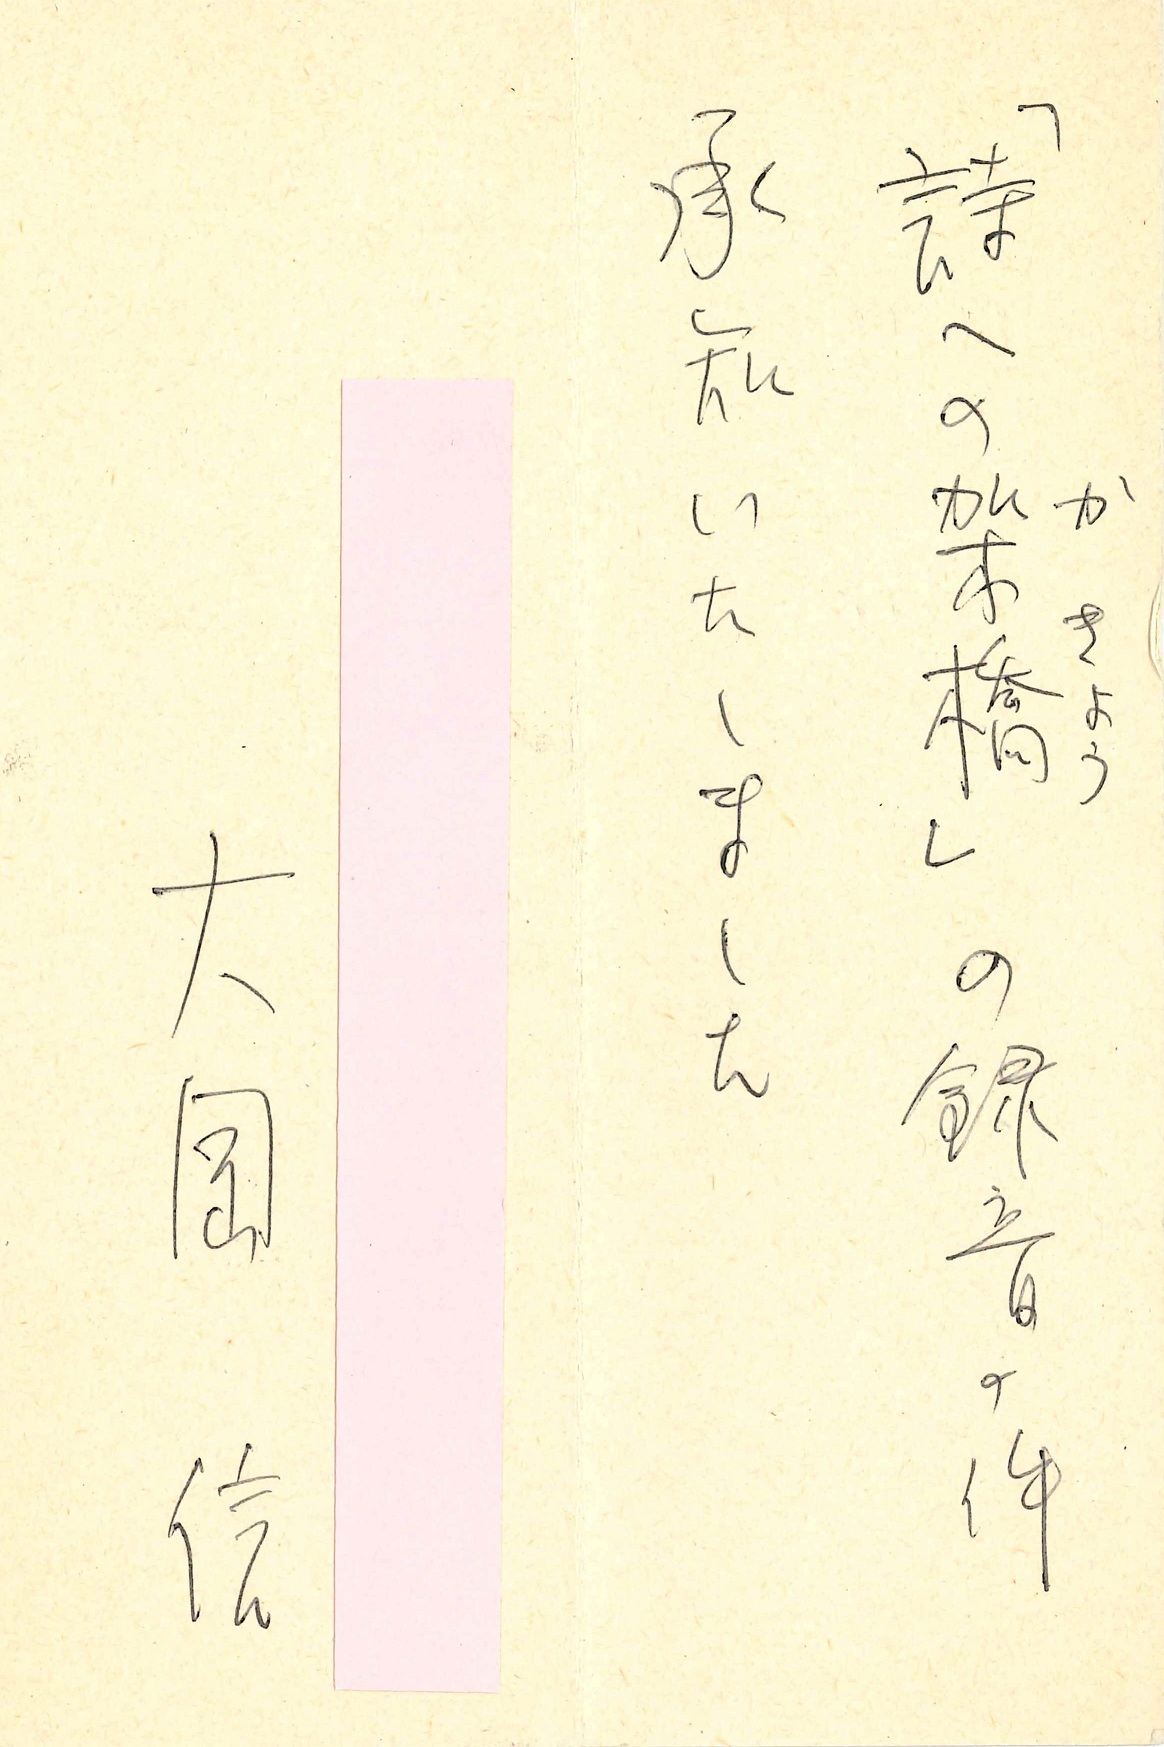 「詩への架橋」の録音の件
かきょう
承知いたしました
大岡 信